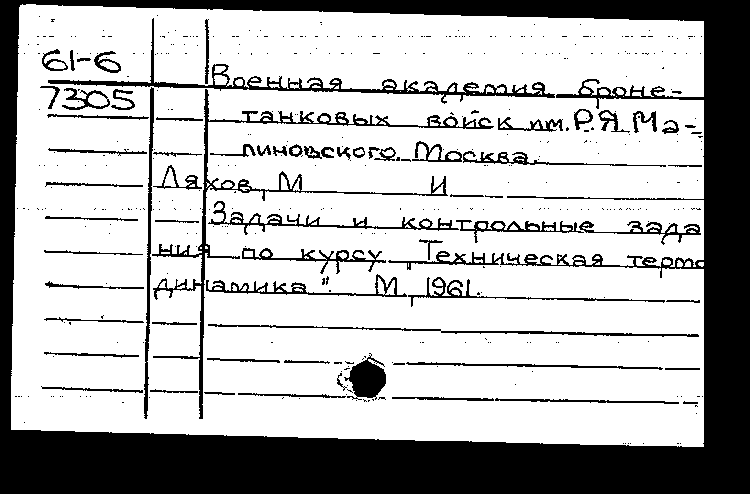 61-6
7305
Военная академия броне-
танковых войск им. Р.Я.Ма-
линовского. Москва.
Ляхов, М И
Задачи и контрольные зада
ния по курсу "Техническая термо
динамика". М., 1961.